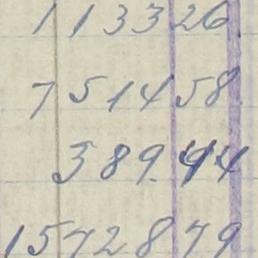 1133 26
7514 58
389.44
15728 79